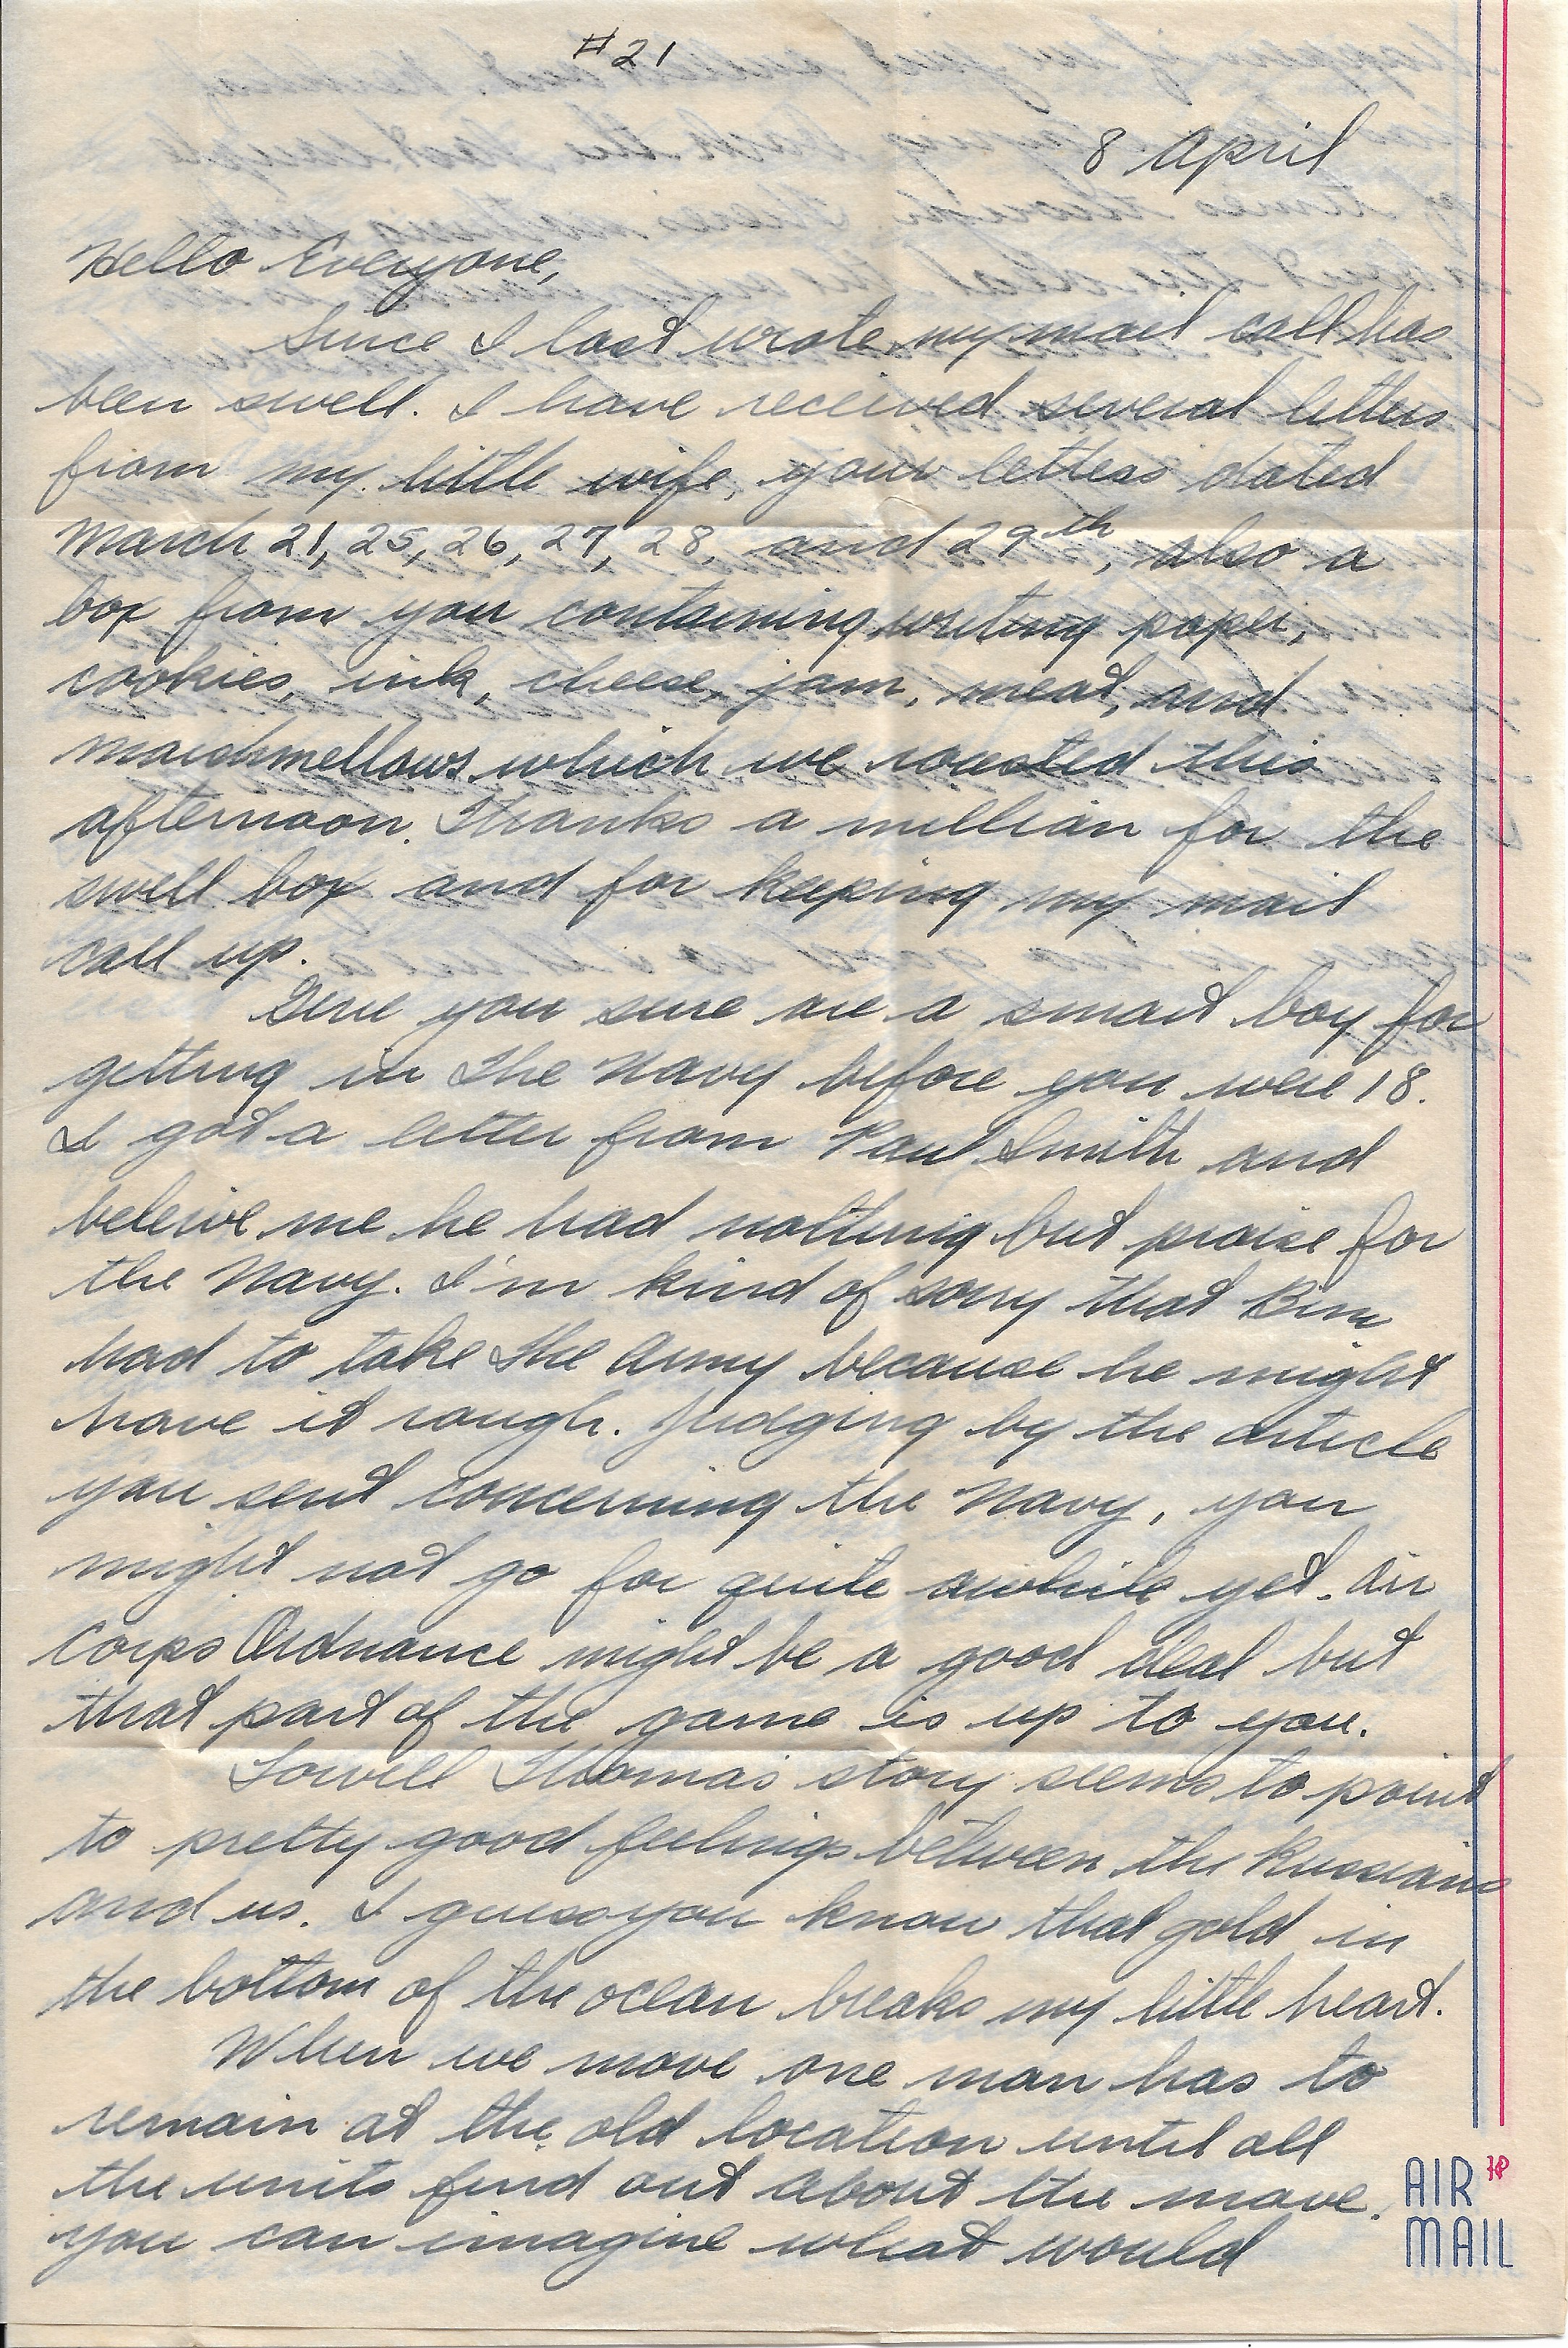 #21
8 April
Hello Everyone,
Since I last wrote my mail call has
been swell. I have received several letters
from my little wife, your letters dated
March 21, 25, 26, 27, 28, and 29th, also a
box from you containing writing paper,
cookies, ink, cheese, jam, meat, and
marshmellows which we roasted this
afternoon. Thanks a million for the
swell box and for keeping my mail
call up.
you sure are a smart boy for
getting in the Navy before you were 18.
I got a letter from Paul Smith and
beleive me he had nothing but praise for
the Navy. I'm kind of sorry that Bim
had to take the Army because he might
have it rough. Judging by the article
you sent concerning the Navy, you
might not go for quite awhile yet. Air
Corps Ordnance might be a good deal but
that part of the game is up to you.
Lowell Thomas' story seems to point
to pretty good feelings between the Russians
and us. I guess you know that gold in
the bottom of the ocean breaks my little heart.
When we move one man has to
remain at the old location until all
the units find out about the move.
You can imagine what would
AIR
MAIL